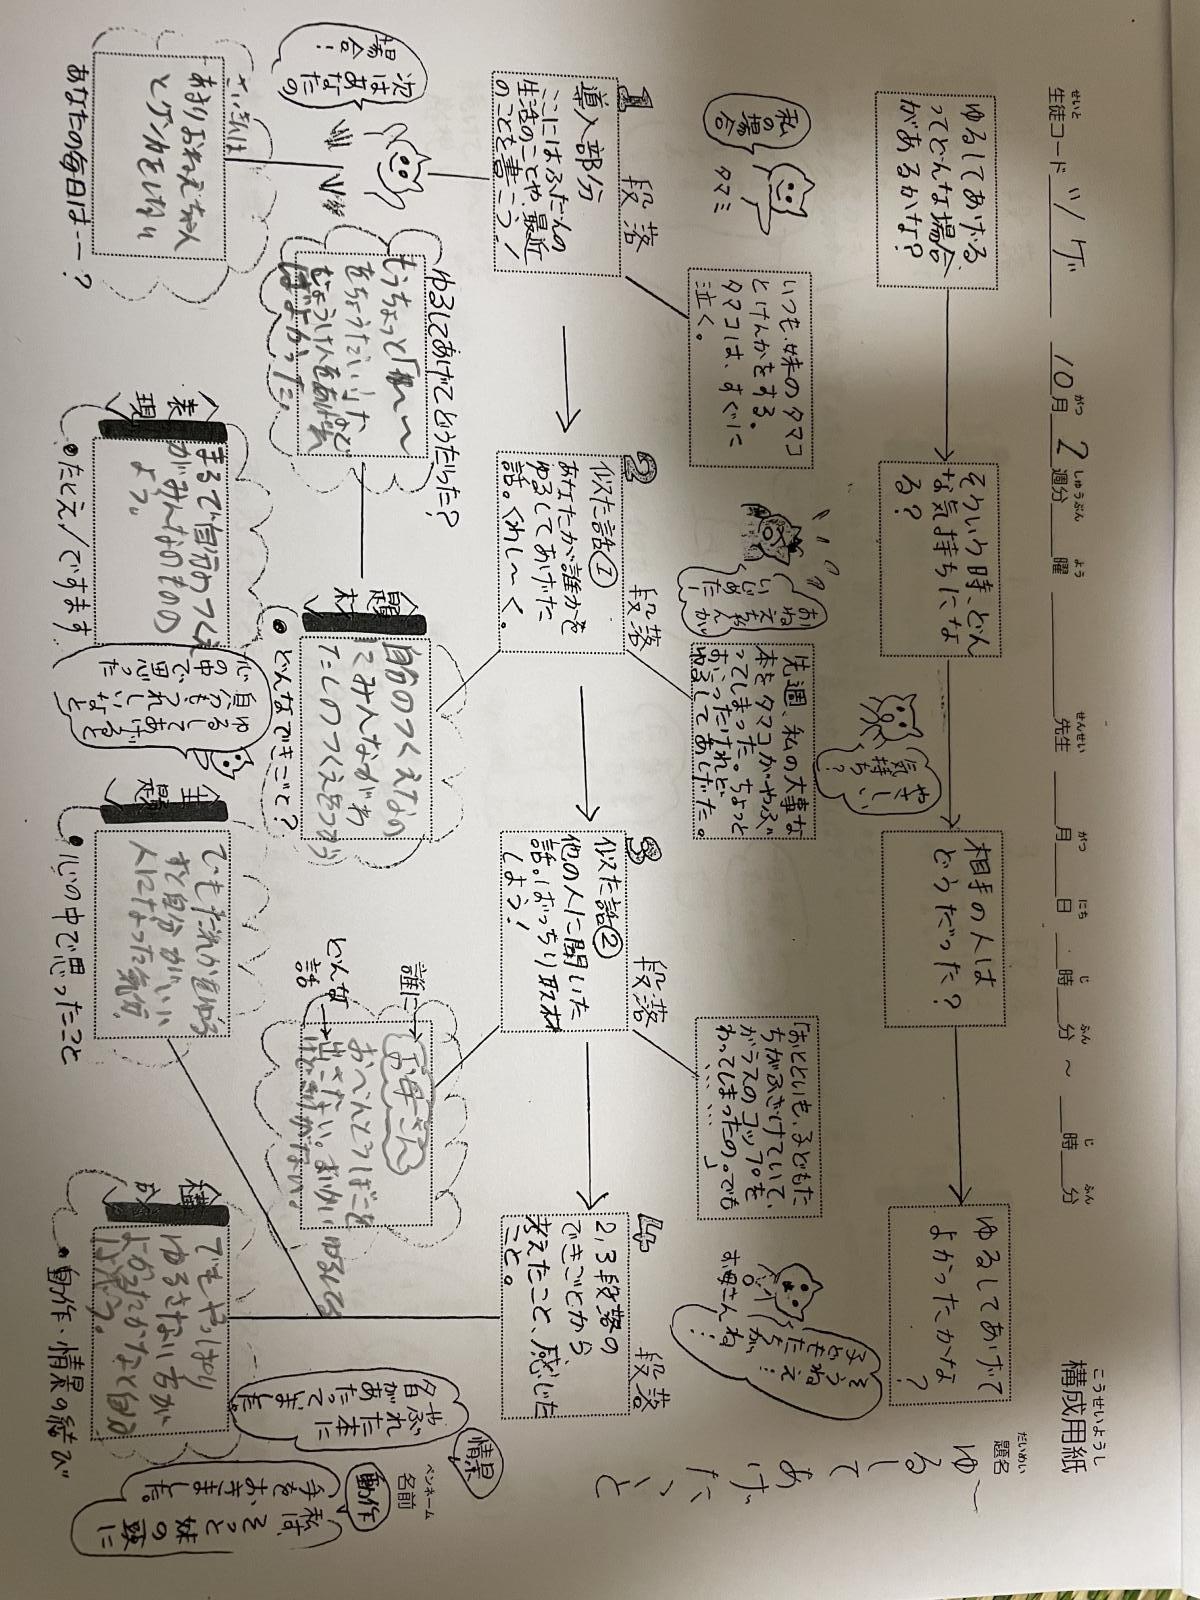 構成用紙
こうせいようし
生徒コード ツノゲ 10月 2週分 曜 先生 月 日 時 分 ~ 時 分
せいと がつ しゅうぶん よう せんせい がつ にち じ ふん じ ふん
題名
だいめい
ゆるしてあげたいと
ペンネーム
名前
ゆるしてあげる
ってどんな場合
があるかな?
そういう時、どん
な気持ちにな
る?
相手の人は
どうだった?
ゆるしてあげて
よかったかな
?
私
の場
合
タマミ
やさしい
気持ち?
いつも、妹のタマコ
とけんかをする。
タマコは、すぐに
泣く。
おねえちゃんが
いじめた!
先週、私の大事な
本をタマコがやぶ
ってしまった。ちょっと
おこったけれど、
ゆるしてあげた。
「おとといも、子どもた
ちがふざけていて、
ガラスのコップを
わってしまったの。でも
……………」
お母さんね
…
1段落
導入部分
ここにはふだんの
生活のことや、最近
のことを書こう!
2段落
似た話①
あなたが誰かを
ゆるしてあげた
話。くわし〜く。
3段落
似た話②
他の人に聞いた
話。ばっちり取材
しよう!
4段落
2,3段落の
できごとから
考えたこと、感じた
こと。
次はあなたの
場合!
さいきんは
あまりおねえちゃん
とケンカをしない
あなたの毎日は…?
ゆるしてあげてどうだった?
もうちょっと「
をちょうだい」などで
じょうけんをあげれ
ばよかった。
〈題材〉
自分のつくえなの
にみんながわ
たしのつくえをつかう
●どんなできごと?
誰に
お母さん
どんな
話
おべんとうばこを
出さない。
〈表現〉
まるで自分のつくえ
がみんなのものの
よう。
●たとえ/ですます
自分もうれしいなと
心の中で思った
〈主題〉
でもだれかをゆる
すと自分がいい
人になった気分
●心の中で思ったこと
〈構成〉
でもやっぱり
ゆるさないちが
よかったかなと
●動作、情景の結び
情景
やぶれた本に
夕日があたって
いました。
動作
私は、そっと妹の頭に
手をおきました。